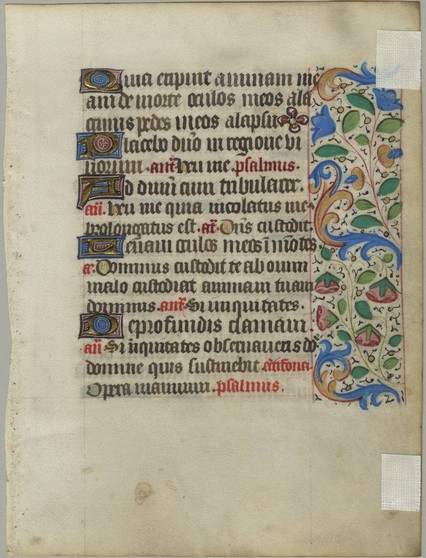 Quia eripuit animam me
am de morte oculos meos a la
crimis pedes meos a lapsu
Placebo dño in regione vi
vorum. añ. heu me. psalmus.
Ad dominū cum tribularer.
añ. heu me quia incolatus me
prolongatus est. añ. Dñs custodit.
Levavi oculos meos ī motes
a. Dominus custodit te ab omni
malo custodiat animam tuam
dominus. añ. Si iniquitates.
De profundis clamavi
añ Si iniquitates observaveris do
domine quis sustinebit. Antifona.
Opera manuum. psalmus.